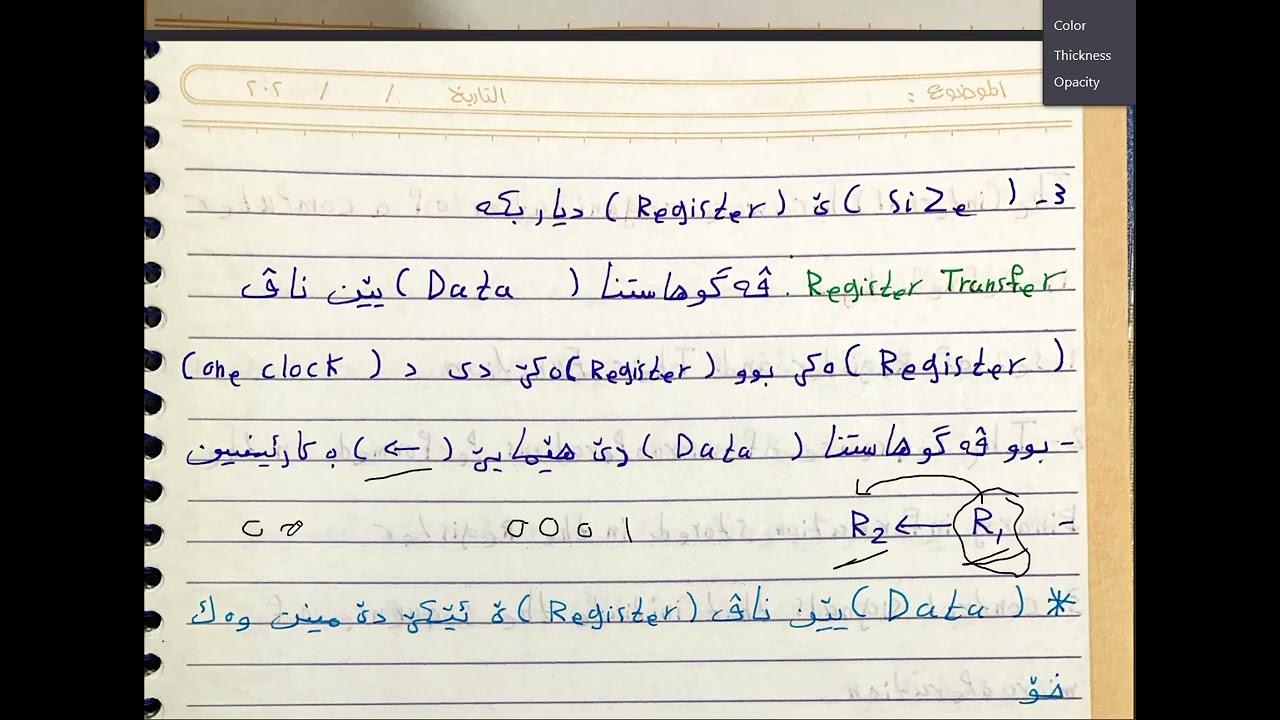 Color
Thickness
Opacity
الموضوع : التاريخ / / ٢٠٢
3- ( Size )ێ ( Register ) دیار بکه
Register Transfer . ڤه گوهاستنا ( Data )یێن ناڤ
( Register )ه کێ بوو ( Register )ه کێ دی د ( one clock )
- بوو ڤه گوهاستنا ( Data ) دێ هێمایێ ( ← ) به کارئینین
- R2 ← R1 0001 00
* ( Data )یێن ناڤ ( Register )ێ ئێکێ دێ مینن وه ك
خۆ